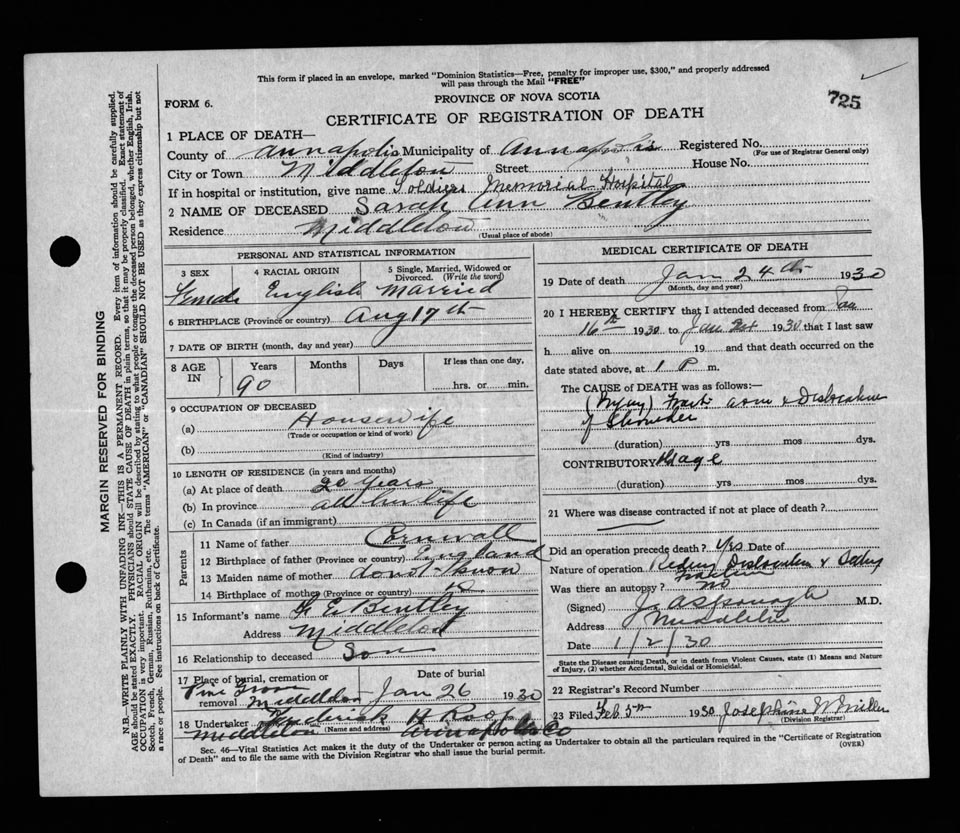 This form if placed in an envelope, marked "Dominion Statistics—Free, penalty for improper use, $300," and properly addressed
will pass through the Mail "FREE"
725
FORM 6.
PROVINCE OF NOVA SCOTIA
CERTIFICATE OF REGISTRATION OF DEATH
1 PLACE OF DEATH—
County of Annapolis Municipality of Annapolis Registered No.
(For use of Registrar General only)
City or Town Middleton Street House No.
If in hospital or institution, give name Soldiers Memorial Hospital
2 NAME OF DECEASED Sarah Ann Bentley
Residence Middleton
(Usual place of abode)
PERSONAL AND STATISTICAL INFORMATION
3 SEX 4 RACIAL ORIGIN 5 Single, Married, Widowed or
Divorced. (Write the word)
Female English Married
6 BIRTHPLACE (Province or country) Aug 17th
7 DATE OF BIRTH (month, day and year)
8 AGE IN Years Months Days If less than one day,
90 hrs. or min.
9 OCCUPATION OF DECEASED
(a) Housewife
(Trade or occupation or kind of work)
(b)
(Kind of industry)
10 LENGTH OF RESIDENCE (in years and months)
(a) At place of death 20 years
(b) In province all her life
(c) In Canada (if an immigrant)
Parents
11 Name of father Cornwall
12 Birthplace of father (Province or country) England
13 Maiden name of mother
14 Birthplace of mother (Province or country)
15 Informant's name E Bentley
Address Middleton
16 Relationship to deceased Son
17 Place of burial, cremation or Date of burial
removal Pine Grove Middleton Jan 26 1930
18 Undertaker Frederick H Roop
(Name and address)
Middleton Annapolis Co
MEDICAL CERTIFICATE OF DEATH
19 Date of death Jan 24th 1930
(Month, day and year)
20 I HEREBY CERTIFY that I attended deceased from Jan
16th 1930 to Jan 24 1930 that I last saw
h alive on 19 and that death occurred on the
date stated above, at 1 P m.
The CAUSE OF DEATH was as follows:
(Injury) Fract. arm & Dislocation
of Shoulder
(duration) yrs mos dys.
CONTRIBUTORY Old age
(duration) yrs mos dys.
21 Where was disease contracted if not at place of death?
Did an operation precede death? Yes Date of
Nature of operation Reducing Dislocation &
Fracture
Was there an autopsy? no
(Signed) M.D.
Address Middleton
Date 1/2/30
State the Disease causing Death, or in death from Violent Causes, state (1) Means and Nature
of Injury, (2) whether Accidental, Suicidal or Homicidal.
22 Registrar's Record Number
23 Filed Feb 5th 1930 Josephine W Miller
(Division Registrar)
Sec. 46—Vital Statistics Act makes it the duty of the Undertaker or person acting as Undertaker to obtain all the particulars required in the "Certificate of Registration
of Death" and to file the same with the Division Registrar who shall issue the burial permit.
(OVER)
MARGIN RESERVED FOR BINDING
N.B.—WRITE PLAINLY WITH UNFADING INK—THIS IS A PERMANENT RECORD. Every item of information should be carefully supplied.
AGE should be stated EXACTLY. PHYSICIANS should STATE CAUSE OF DEATH in plain terms, so that it may be properly classified. Exact statement of
OCCUPATION is very important. RACIAL ORIGIN will be described by stating to what people or tongue the deceased person belonged, whether English, Irish,
Scotch, French, German, Russian, Ruthenian, etc. The terms "AMERICAN" or "CANADIAN" SHOULD NOT BE USED as they express citizenship but not
a race or people. See instructions on back of Certificate.